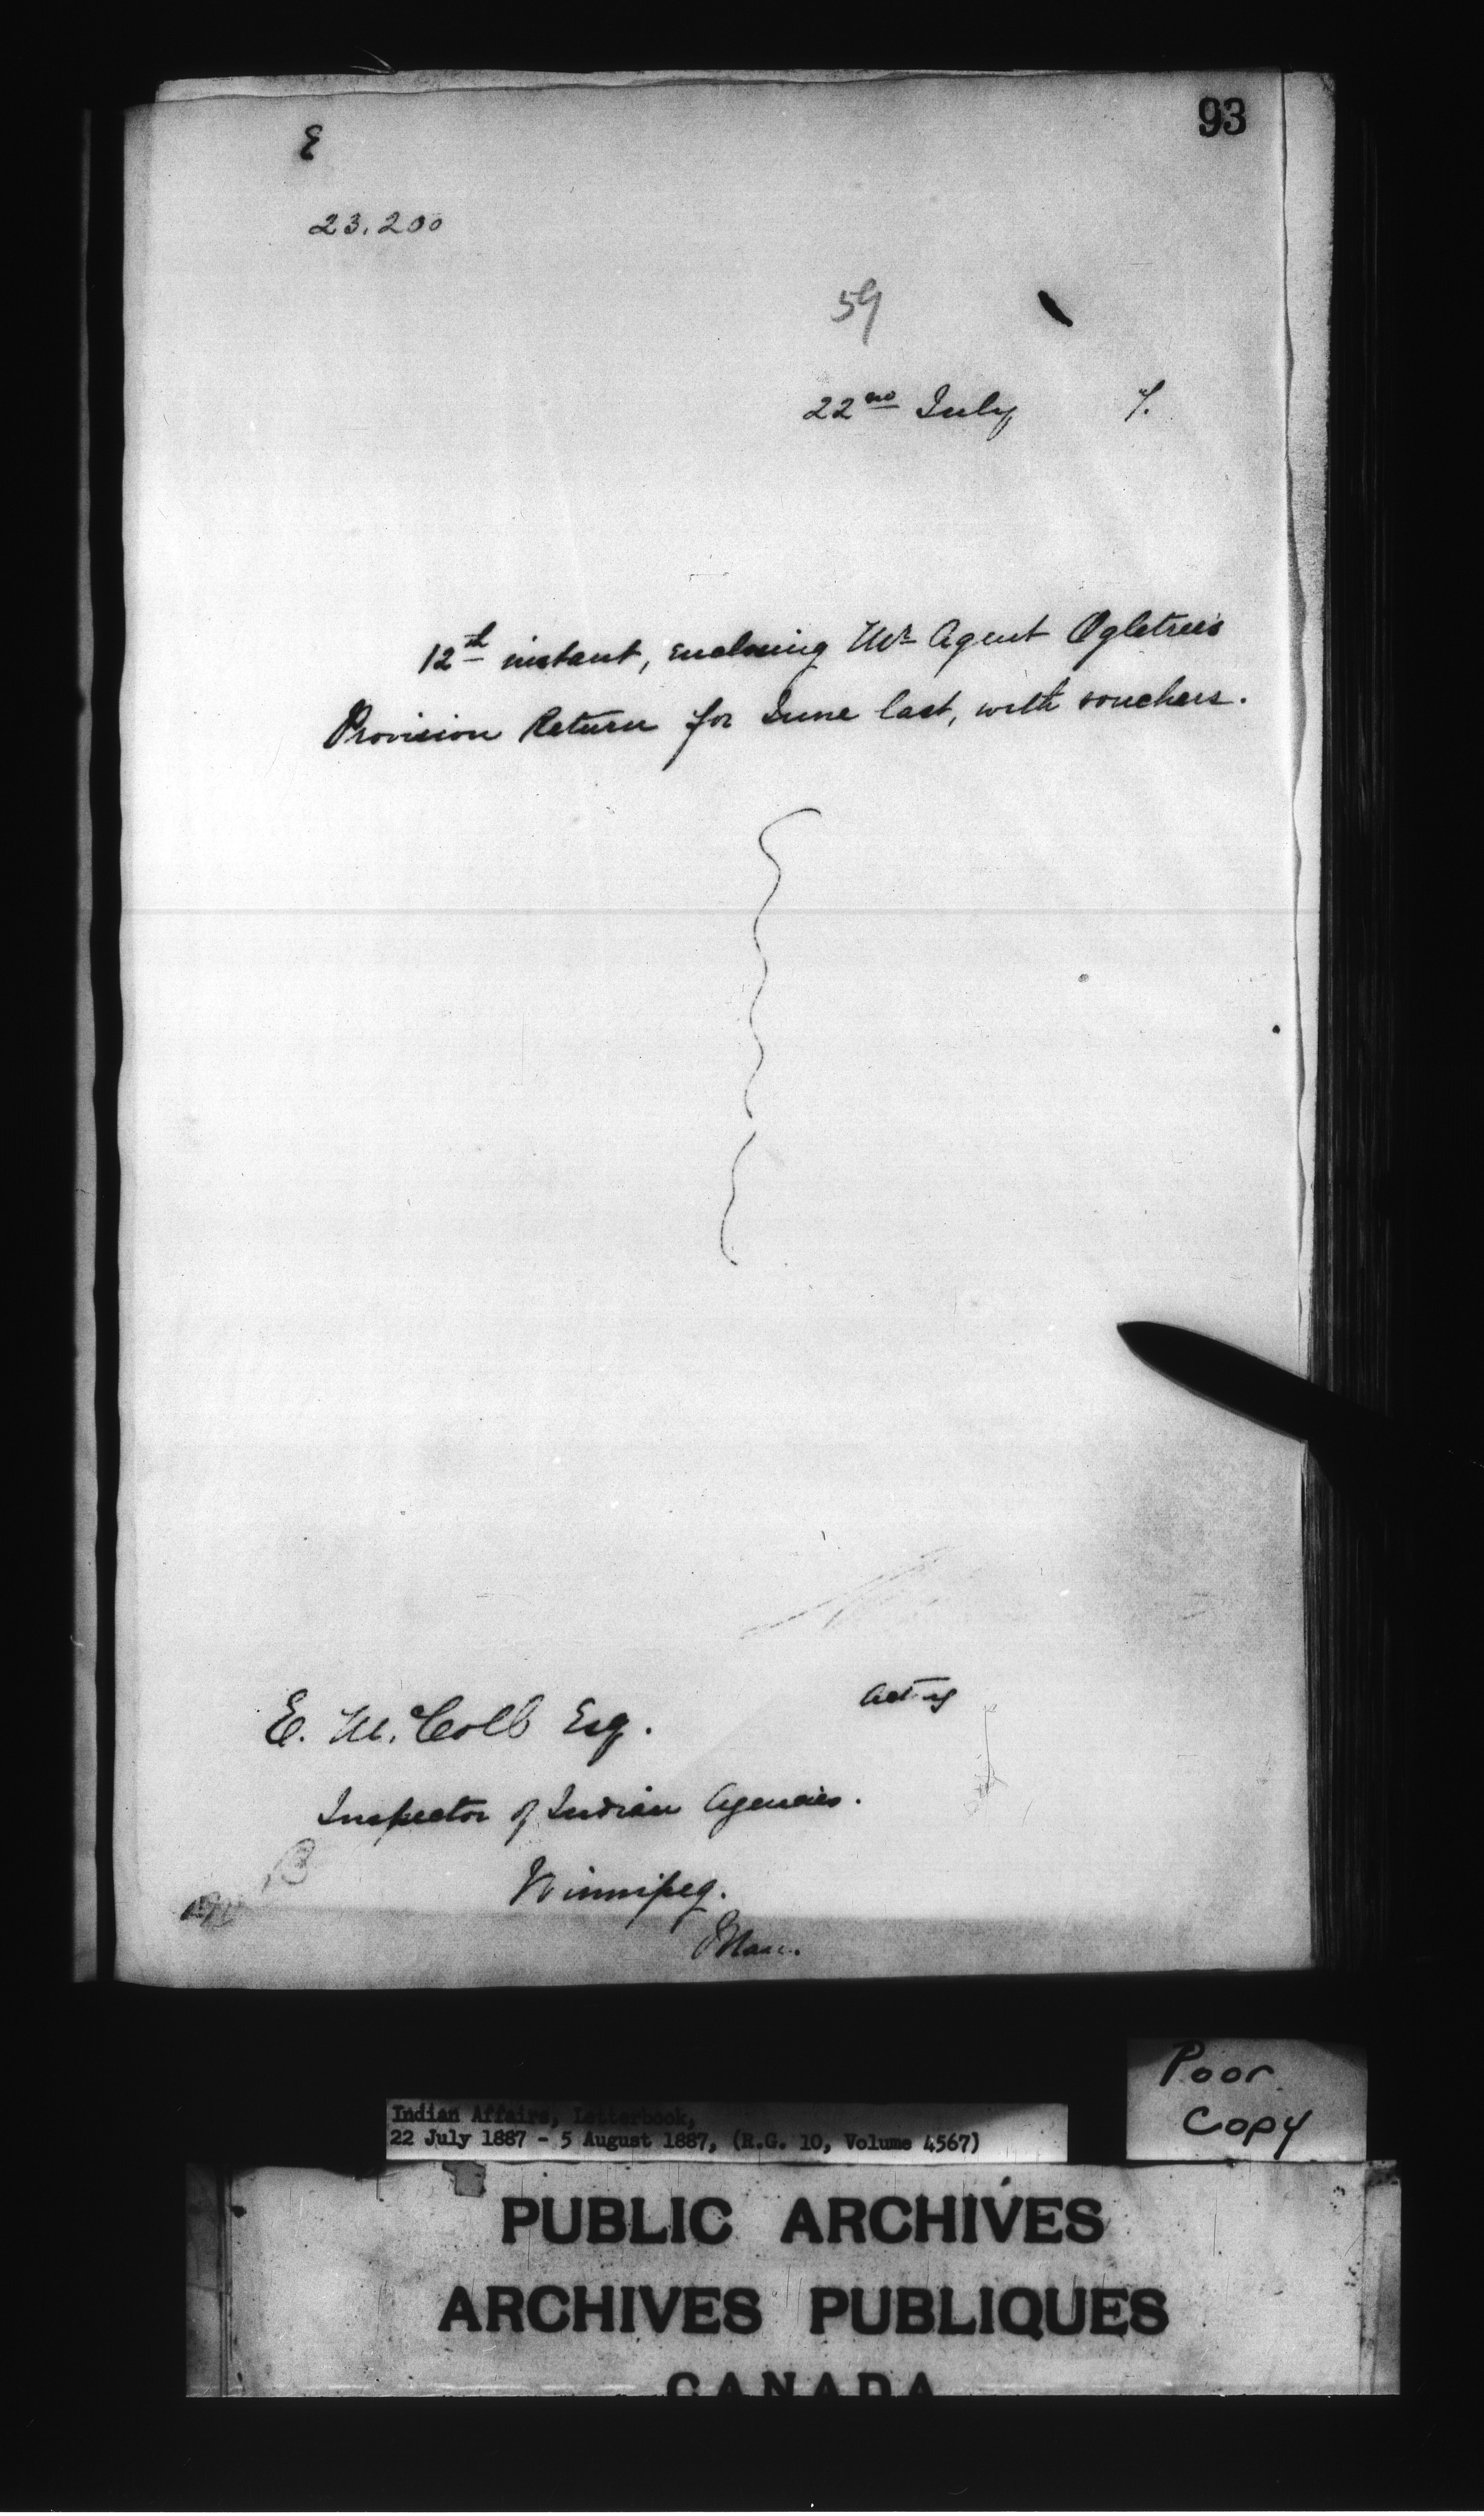 93
E
23.200
59
22nd July 7.
12th instant, enclosing Mr Agent Ogletree's
Provision Return for June last, with vouchers.
Acting
E. McColl Esq.
Inspector of Indian Agencies.
Winnipeg.
Man.
Poor
Copy
Indian Affairs, Letterbook,
22 July 1887 - 5 August 1887, (R.G. 10, Volume 4567)
PUBLIC ARCHIVES
ARCHIVES PUBLIQUES
CANADA